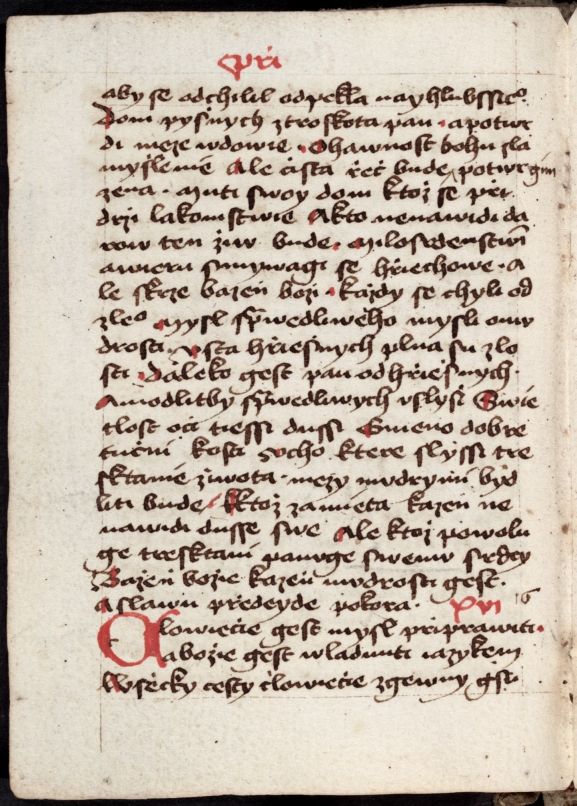 při
aby se odchilil odpekla nayhlubssieo
Dom pyssnych ztroskota pan · a potwr
di meze wdowie · Ohawnost bohu zla
myslenie Ale cista řeč bude potwrzena
zena · Muti swoy dom ktoz se při
drzi lakomstwie Akto nenawidi da
row ten żiw bude · Milosrdenstwī
awieru smywagi se hřiechowe · A
le skrze bazeň bozi · każdy se chyli od
zleo mysl sprwedliweho mysli omu
drosti vsta hřiesnych plna su zlo
sti · Daleko gest pan od hřiesnych ·
Amodlitby sprwedliwych vslyssi Swie
tlost oči tiessi dussi Gmeno dobre
tucni kosti vcho ktere slyssi tre
sktanie żiwota · mezy mudrymi byd
liti bude · Ktoż zamieta kazen ne
nawidi dusse swe Ale ktoż powolu
ge tresktani panuge swemu srdcy
Bazeň bozie kazeň mudrosti gest ·
Aslawu předeyde pokora · xvi 16
Clowiecie gest mysl připrawiti ·
abozie gest wladnuti iazykem
Wsecky cesty člowiecie zgewny gsu